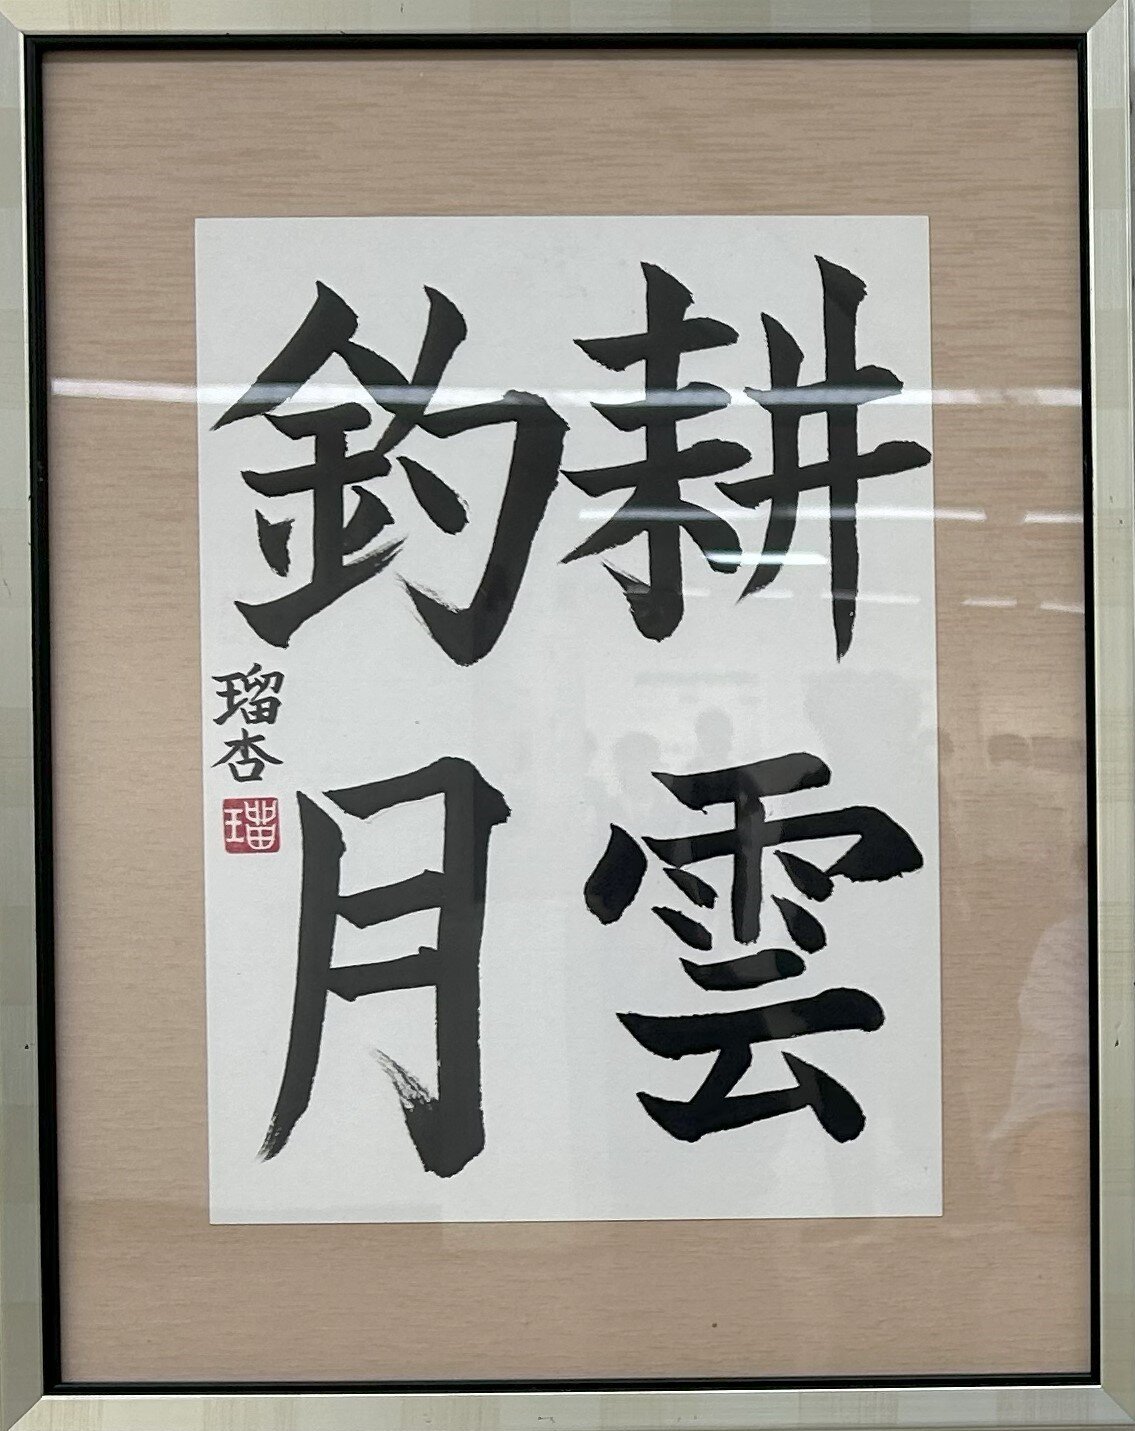 耕雲
釣月
瑠杏
瑠